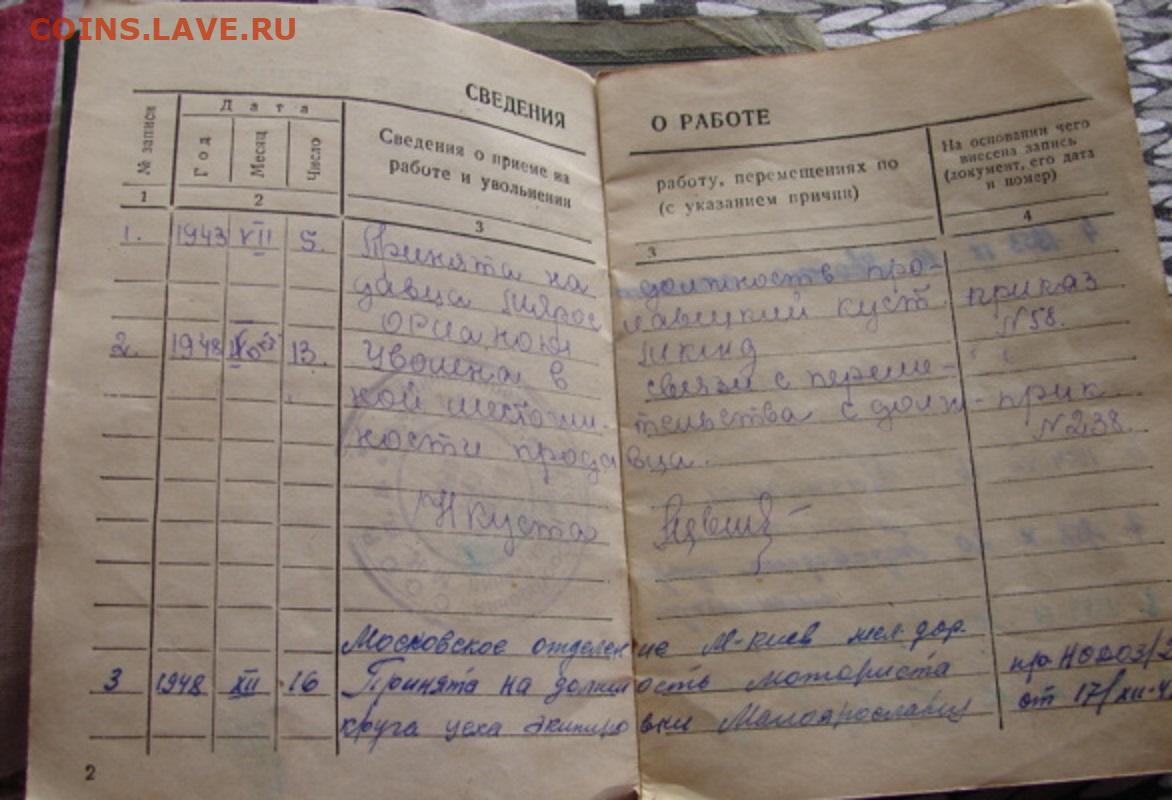 COINS.LAVE.RU
СВЕДЕНИЯ О РАБОТЕ
№ записи
Дата
Год
Месяц
Число
Сведения о приеме на работу, перемещениях по
работе и увольнении (с указанием причин)
На основании чего
внесена запись
(документ, его дата
и номер)
1 2 3 3 4
1. 1943 VII 5. Принята на должность про-
давца приказ
N 58.
2. 1948 13. Уволена в связи с переме-
ной места жительства с долж- прик
ности продавца. N 238.
Московское отделение М-Киев жел. дор.
3 1948 XII 16 Принята на должность моториста
круга цеха экипировки Малоярославец от 17/XII-4
2